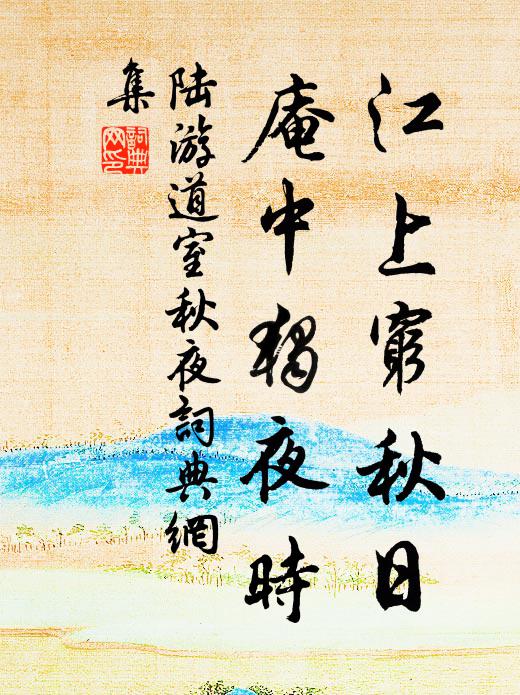 江上窮秋日
庵中獨夜時
陸游道室秋夜詞典網
集
詞典網印